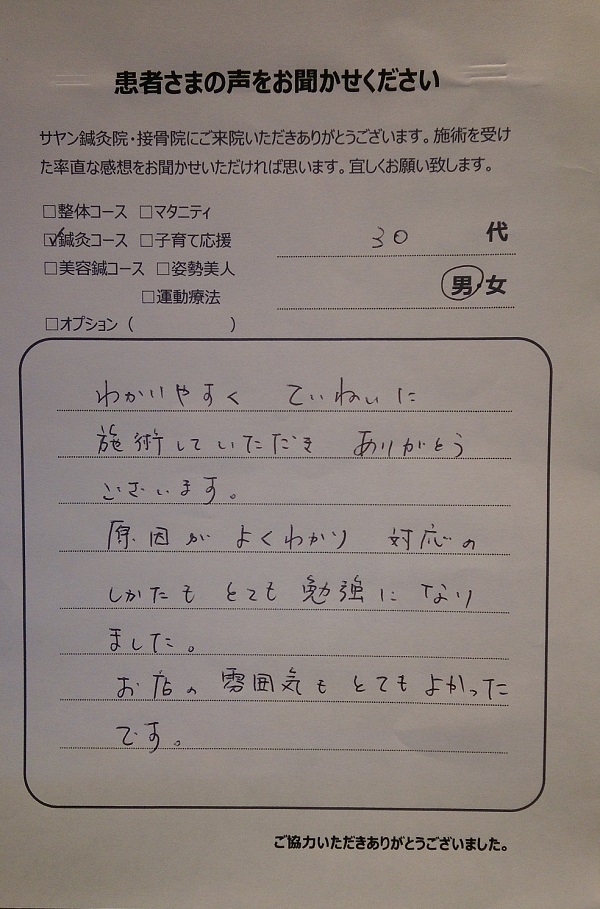 患者さまの声をお聞かせください
サヤン鍼灸院・接骨院にご来院いただきありがとうございます。施術を受け
た率直な感想をお聞かせいただければ思います。宜しくお願い致します。
□整体コース □マタニティ
☑鍼灸コース □子育て応援
□美容鍼コース □姿勢美人
□運動療法
□オプション（ ）
30 代
男・女
わかりやすく ていねいに
施術していただき ありがとう
ございます。
原因が よくわかり 対応の
しかたも とても 勉強に なり
ました。
お店の 雰囲気も とても よかった
です。
ご協力いただきありがとうございました。